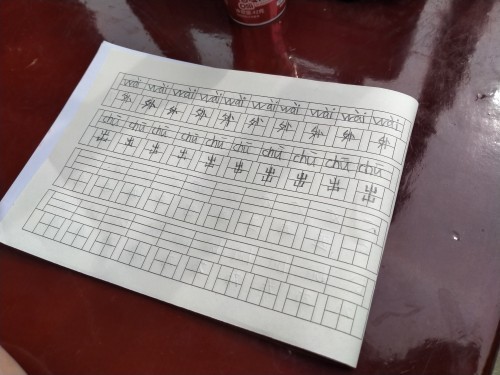 wài wài wài wài wài wài wài wài wài wài
外 外 外 外 外 外 外 外 外 外
chū chū chū chū chū chū chū chū chū chū
出 出 出 出 出 出 出 出 出 出